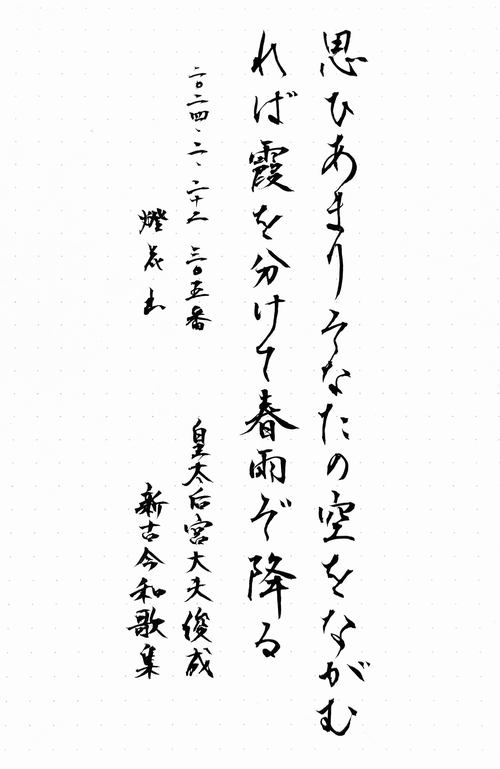 思ひあまりそなたの空をながむ
れば霞を分けて春雨ぞ降る
二〇二四、二、二十二 三〇五番
皇太后宮大夫俊成
新古今和歌集